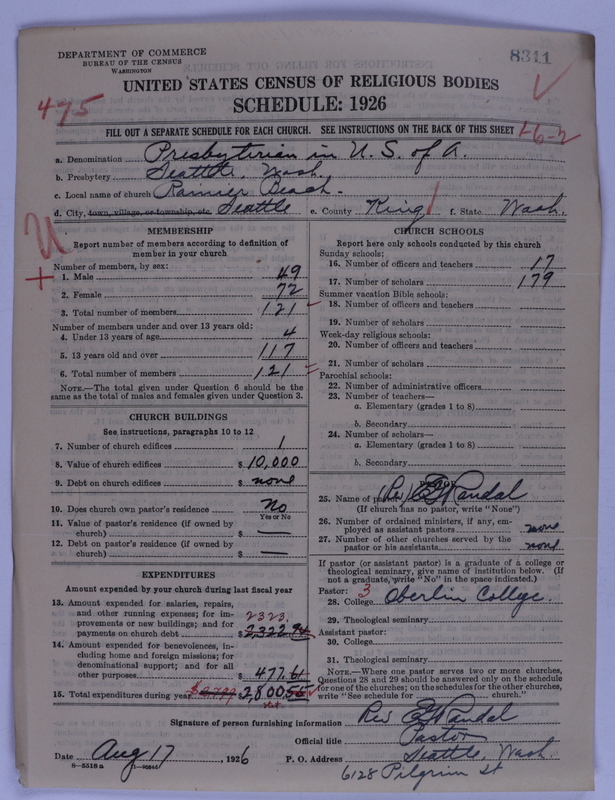 DEPARTMENT OF COMMERCE
BUREAU OF THE CENSUS
WASHINGTON
8311
UNITED STATES CENSUS OF RELIGIOUS BODIES
SCHEDULE: 1926
475
FILL OUT A SEPARATE SCHEDULE FOR EACH CHURCH. SEE INSTRUCTIONS ON THE BACK OF THIS SHEET
a. Denomination Presbyterian in U. S. of A.
b. Presbytery Seattle, Wash.
c. Local name of church Rainier Beach.
d. City, town, village, or township, etc. Seattle e. County King f. State Wash.
MEMBERSHIP
Report number of members according to definition of
member in your church
Number of members, by sex:
1. Male 49
2. Female 72
3. Total number of members 121
Number of members under and over 13 years old:
4. Under 13 years of age 4
5. 13 years old and over 117
6. Total number of members 121
NOTE.—The total given under Question 6 should be the
same as the total of males and females given under Question 3.
CHURCH BUILDINGS
See instructions, paragraphs 10 to 12
7. Number of church edifices 1
8. Value of church edifices $ 10,000
9. Debt on church edifices $ none
10. Does church own pastor's residence No
Yes or No
11. Value of pastor's residence (if owned by
church) $ —
12. Debt on pastor's residence (if owned by
church) $ —
EXPENDITURES
Amount expended by church during last fiscal year
13. Amount expended for salaries, repairs,
and other running expenses; for im-
provements or new buildings; and for 2323
payments on church debt $ 2,322.94
14. Amount expended for benevolences, in-
cluding home and foreign missions; for
denominational support; and for all
other purposes $ 477.61
15. Total expenditures during year $ 2,800.55
CHURCH SCHOOLS
Report here only schools conducted by this church
Sunday schools:
16. Number of officers and teachers 17
17. Number of scholars 179
Summer vacation Bible schools:
18. Number of officers and teachers
19. Number of scholars
Week-day religious schools:
20. Number of officers and teachers
21. Number of scholars
Parochial schools:
22. Number of administrative officers
23. Number of teachers—
a. Elementary (grades 1 to 8)
b. Secondary
24. Number of scholars—
a. Elementary (grades 1 to 8)
b. Secondary
PASTOR
25. Name of pastor (Rev) Randal
(If church has no pastor, write "None")
26. Number of ordained ministers, if any, em-
ployed as assistant pastors none
27. Number of other churches served by the
pastor or his assistants none
If pastor (or assistant pastor) is a graduate of a college or
theological seminary, give name of institution below. (If
not a graduate, write "No" in the space indicated.)
Pastor: 3
28. College Oberlin College.
29. Theological seminary
Assistant pastor:
30. College
31. Theological seminary
NOTE.—Where one pastor serves two or more churches,
Questions 28 and 29 should be answered only on the schedule
for one of the churches; on the schedules for the other churches,
write "See schedule for church."
Signature of person furnishing information Rev Randal
Official title Pastor
Date Aug 17, 1926 P. O. Address Seattle, Wash
8—5518 a
6128 Pilgrim St